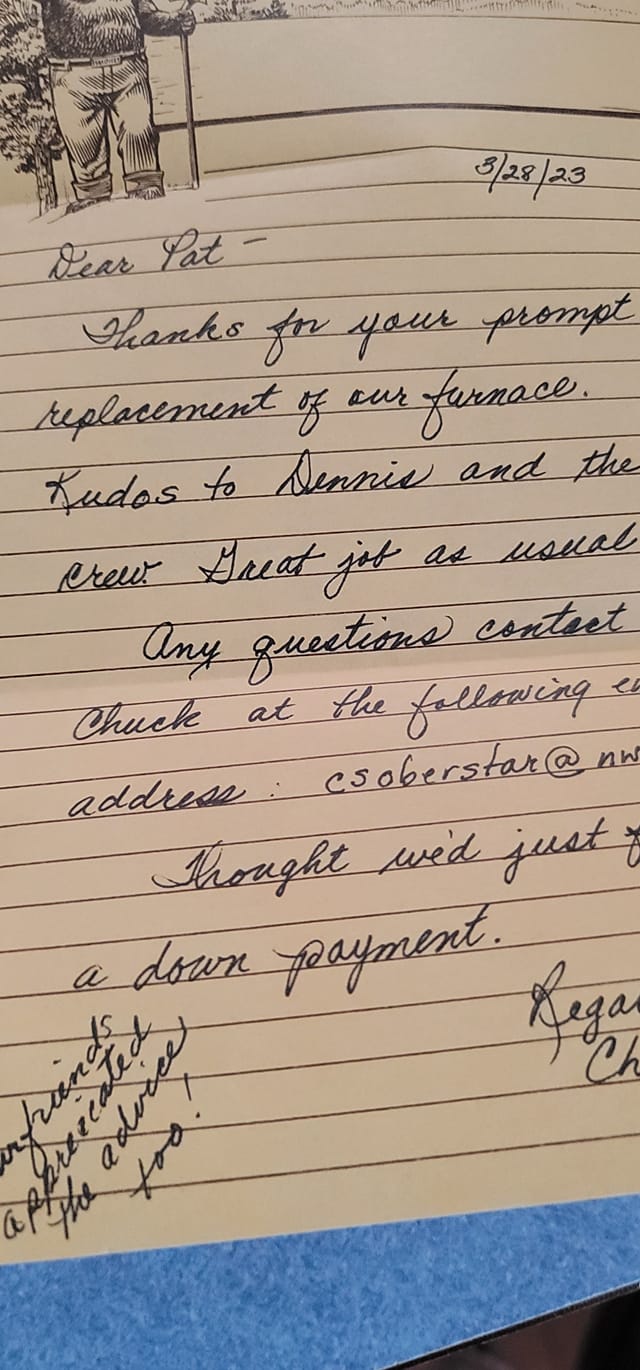 3/28/23
Dear Pat -
Thanks for your prompt
replacement of our furnace.
Kudos to Dennis and the
crew. Great job as usual
Any questions contact
Chuck at the following
address : csoberstar@nw
Thought we'd just
a down payment.
Regar
Ch
friends
appreicated
the advice
too!